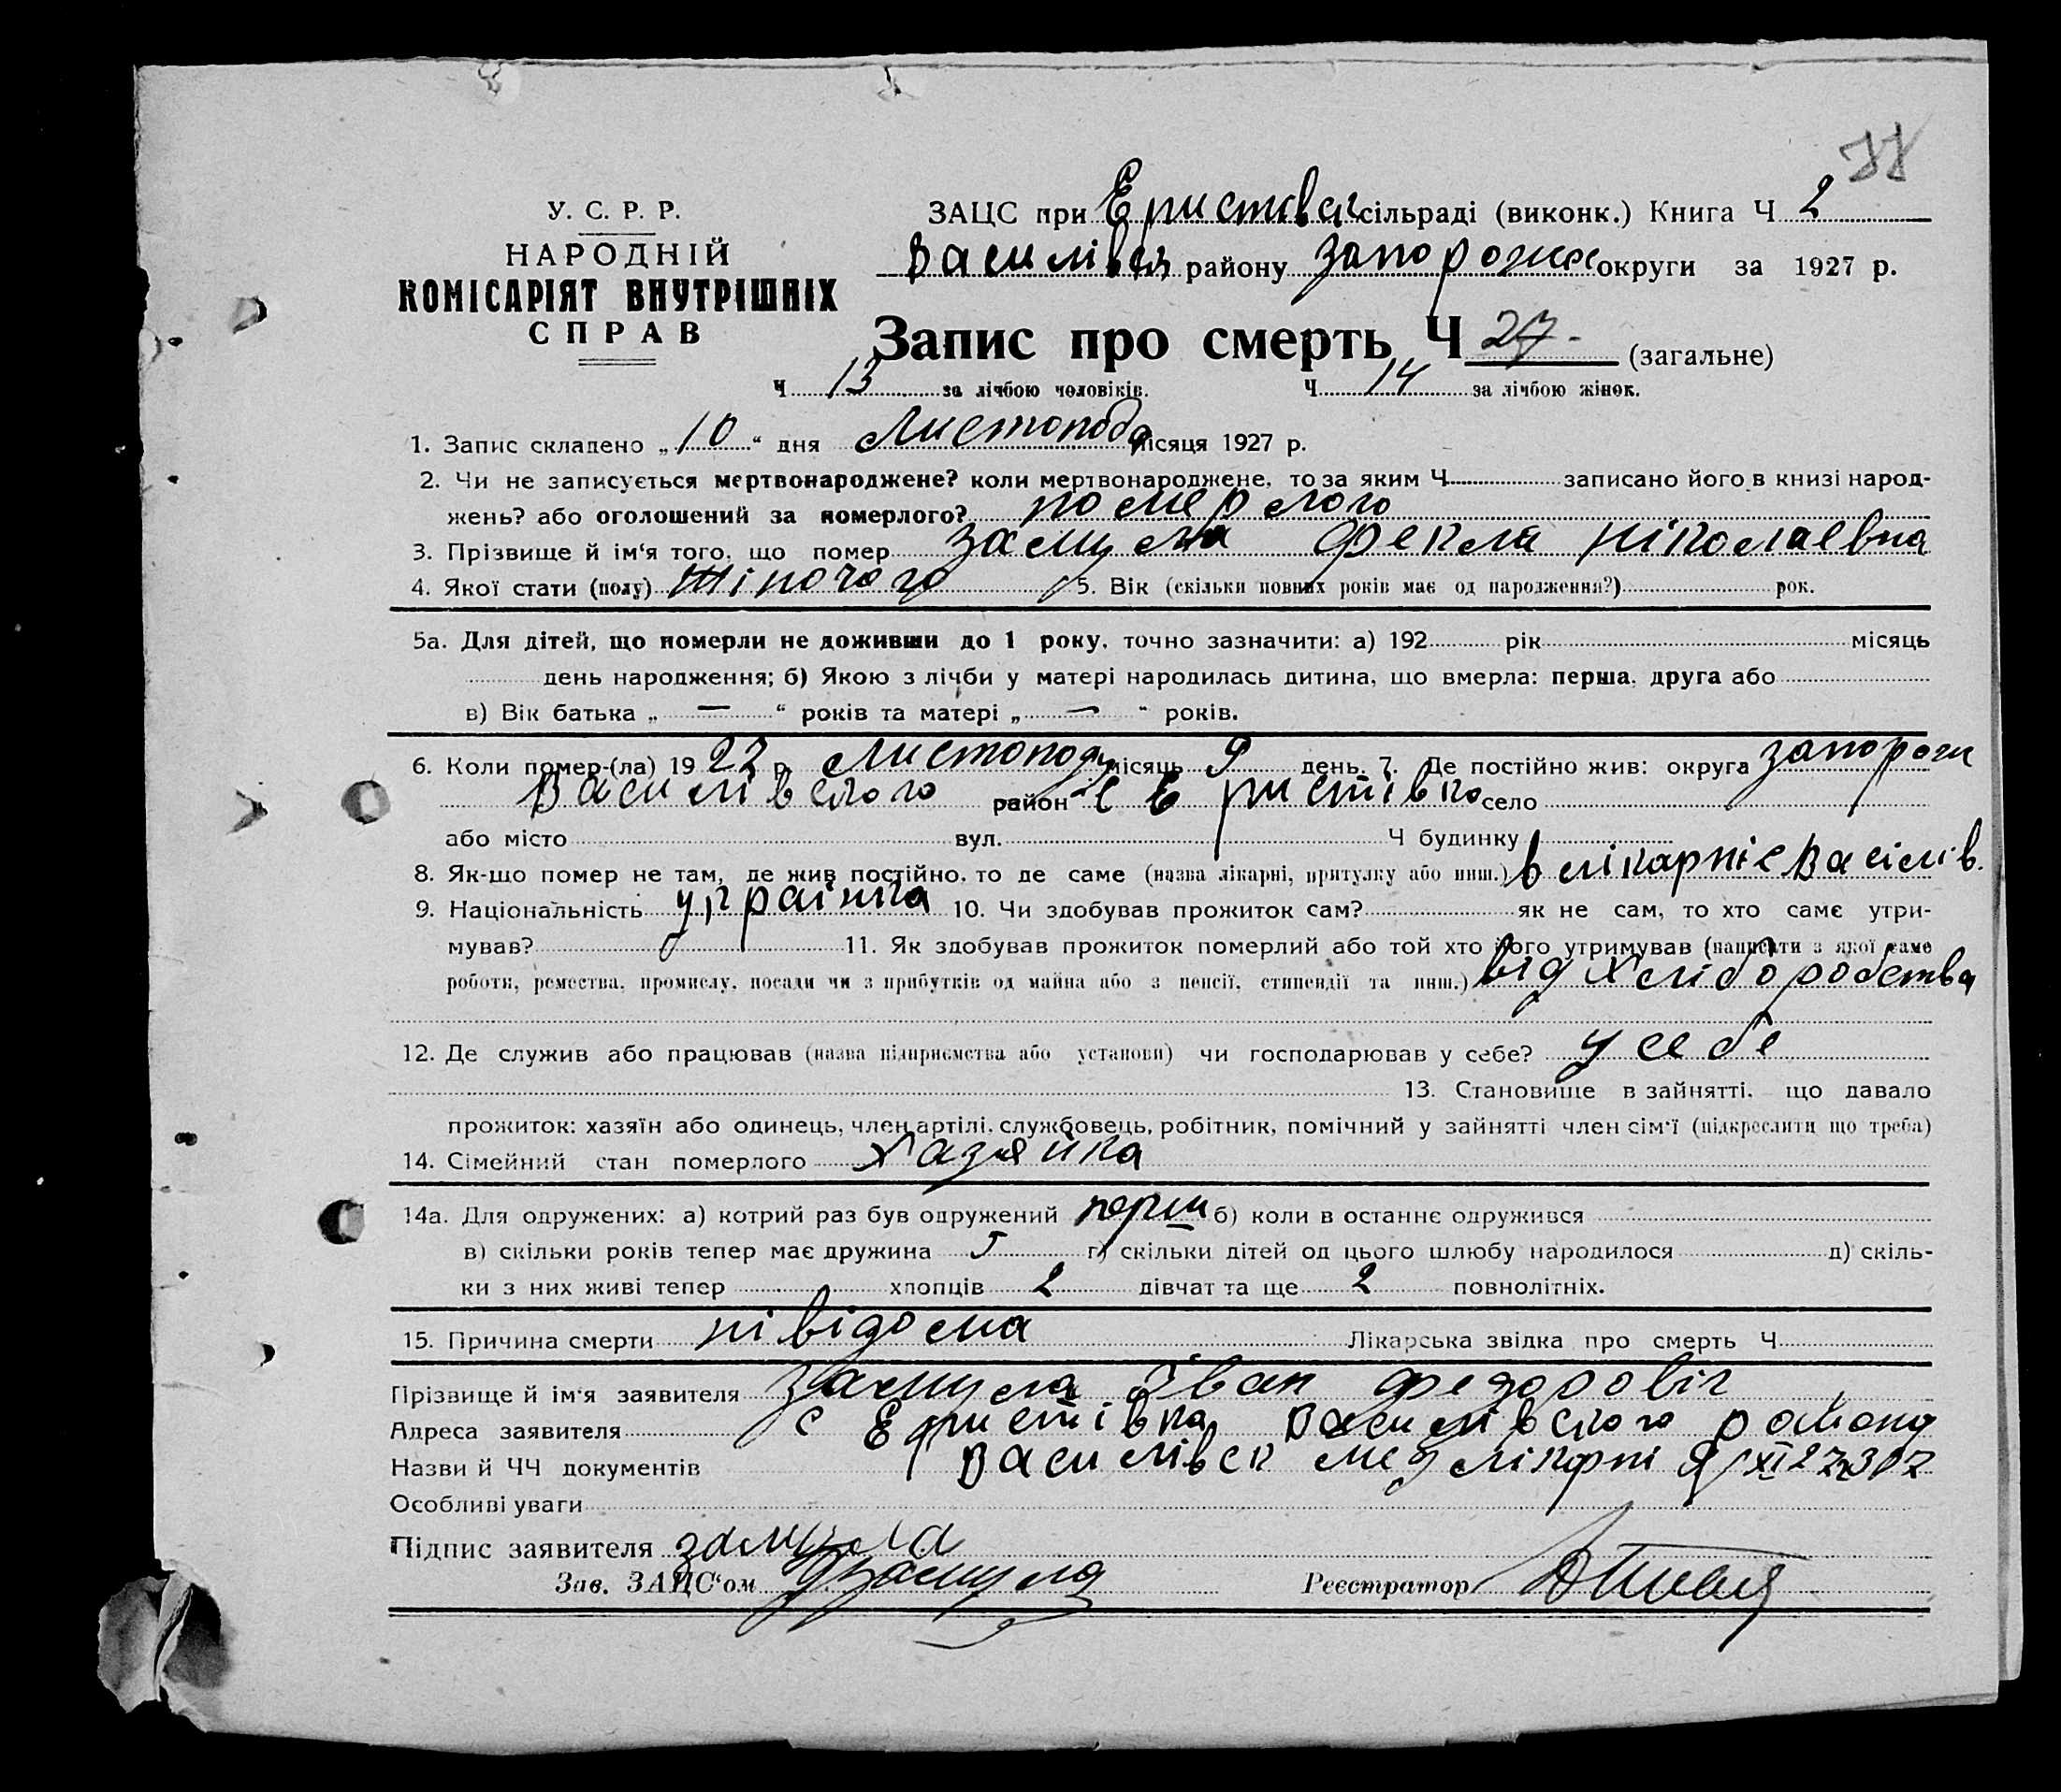 У. С. Р. Р.
НАРОДНІЙ
КОМІСАРІЯТ ВНУТРІШНІХ
СПРАВ
ЗАЦС при Еристівск сільраді (виконк.) Книга Ч 2
Василівск району Запорожск округи за 1927 р.
Запис про смерть Ч 27 - (загальне)
Ч 13 за лічбою чоловіків. Ч 14 за лічбою жінок.
1. Запис складено „10“ дня Листопода місяця 1927 р.
2. Чи не записується мертвонароджене? коли мертвонароджене, то за яким Ч записано його в книзі народ-
жень? або оголошений за померлого? померлого
3. Прізвище й ім‘я того, що помер Замула Фекла Ніколаевна
4. Якої стати (полу) жіночого 5. Вік (скільки повних років має од народження?) рок.
5а. Для дітей, що померли не доживши до 1 року, точно зазначити: а) 192 рік місяць
день народження; б) Якою з лічби у матері народилась дитина, що вмерла: перша, друга або
в) Вік батька „ — “ років та матері „ — “ років.
6. Коли помер-(ла) 19 27 р. Листоподу місяць 9 день. 7. Де постійно жив: округа Запорож
Василівского район с Еристівка село
або місто вул. Ч будинку
8. Як-що помер не там, де жив постійно, то де саме (назва лікарні, притулку або инш.) в лікарніє Васілів.
9. Національність украінка 10. Чи здобував прожиток сам? як не сам, то хто саме утри-
мував? 11. Як здобував прожиток померлий або той хто його утримував (написати з якої саме
роботи, ремества, промислу, посади чи з прибутків од майна або з пенсії, стипендії та инш.) від хліборобства
12. Де служив або працював (назва підприємства або установи) чи господарював у себе? у себе
13. Становище в зайнятті, що давало
прожиток: хазяїн або одинець, член артілі, службовець, робітник, помічний у зайнятті член сім‘ї (підкреслити що треба)
14. Сімейний стан померлого хазяйка
14а. Для одружених: а) котрий раз був одружений перш б) коли в останнє одружився
в) скільки років тепер має дружина г) скільки дітей од цього шлюбу народилося д) скіль-
ки з них живі тепер хлопців 2 дівчат та ще 2 повнолітніх.
15. Причина смерти нівідома Лікарська звідка про смерть Ч
Прізвище й ім‘я заявителя Замула Іван Федоровіч
Адреса заявителя с Еристівка Василівского району
Назви й ЧЧ документів Василівск мед лікарні 9/XI 27
Особливі уваги
Підпис заявителя Замула
Зав. ЗАЦС‘ом Замула Реєстратор